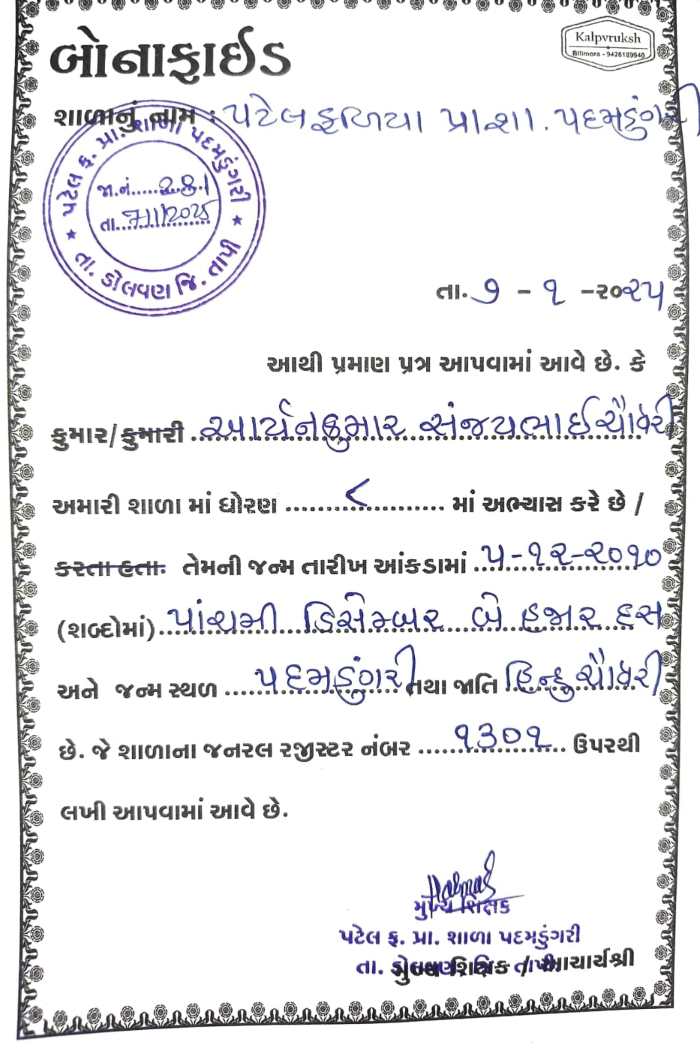 Kalpvruksh
Bilimora - 9426189940
બોનાફાઈડ
શાળાનું નામ : પટેલ ફળિયા પ્રા.શા. પદમડુંગરી
પટેલ ફ. પ્રા. શાળા પદમડુંગરી
જા.નં.....281
તા....7/1/2025
★ તા. ડોલવણ જિ. તાપી ★
તા. ૭ - ૧ -૨૦૨૫
આથી પ્રમાણ પત્ર આપવામાં આવે છે. કે
કુમાર/કુમારી આર્યનકુમાર સંજયભાઈ ચૌધરી
અમારી શાળા માં ધોરણ ......૮...... માં અભ્યાસ કરે છે /
કરતા હતા. તેમની જન્મ તારીખ આંકડામાં ..૫-૧૨-૨૦૧૦
(શબ્દોમાં)..પાંચમી ડિસેમ્બર બે હજાર દસ
અને જન્મ સ્થળ .....પદમડુંગરી તથા જાતિ હિન્દુ ચૌધરી
છે. જે શાળાના જનરલ રજીસ્ટર નંબર .....૧૩૦૧.... ઉપરથી
લખી આપવામાં આવે છે.
મુખ્ય શિક્ષક
પટેલ ફ. પ્રા. શાળા પદમડુંગરી
તા. ડોલવણ જિ. તાપી
મુખ્ય શિક્ષક / આચાર્યશ્રી